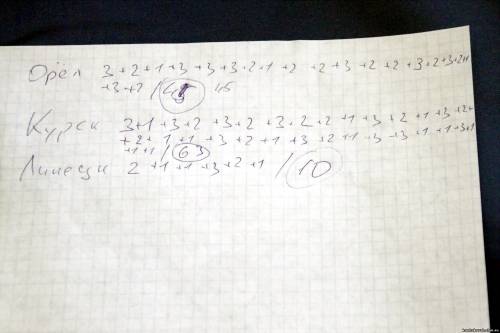 Орёл 3+2+1+3+3+3+2+1+2 +2+3+2+2+3+2+3+2+1
+3+2 / 45
Курск 3+1+3+2+3+2+3+2+2+1+3+2+1+3+2+
+2+1+1+3+2+1+3+2+1+3+3+1+1+3+1
+1+1 / 63
Липецк 2+1+1+3+2+1 / 10